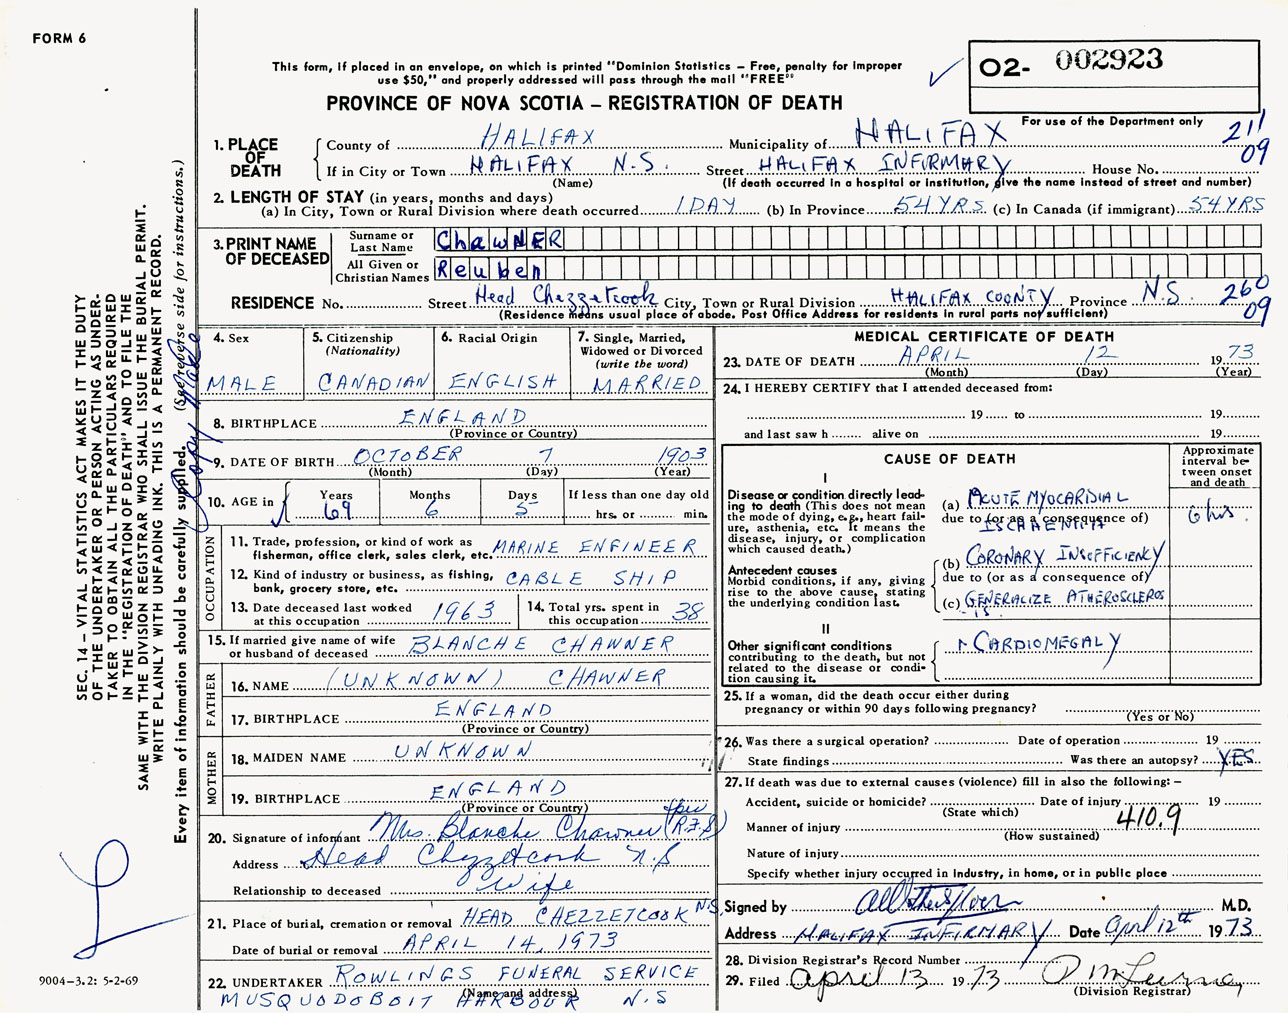 FORM 6
This form, if placed in an envelope, on which is printed "Dominion Statistics – Free, penalty for improper
use $50," and properly addressed will pass through the mail "FREE"
O2- 002923
PROVINCE OF NOVA SCOTIA – REGISTRATION OF DEATH
For use of the Department only
211
09
1. PLACE OF DEATH
County of HALIFAX Municipality of HALIFAX
If in City or Town HALIFAX N.S. Street HALIFAX INFIRMARY House No.
(Name) (If death occurred in a hospital or institution, give the name instead of street and number)
2. LENGTH OF STAY (in years, months and days)
(a) In City, Town or Rural Division where death occurred 1 DAY (b) In Province 54 YRS (c) In Canada (if immigrant) 54 YRS
3. PRINT NAME OF DECEASED
Surname or Last Name ChawNER
All Given or Christian Names Reuben
RESIDENCE No. Street Head Chezzetcook City, Town or Rural Division HALIFAX COUNTY Province N.S. 260
09
(Residence means usual place of abode. Post Office Address for residents in rural parts not sufficient)
4. Sex MALE
5. Citizenship (Nationality) CANADIAN
6. Racial Origin ENGLISH
7. Single, Married, Widowed or Divorced (write the word) MARRIED
8. BIRTHPLACE ENGLAND
(Province or Country)
9. DATE OF BIRTH OCTOBER 7 1903
(Month) (Day) (Year)
10. AGE in Years 69 Months 6 Days 5 If less than one day old hrs. or min.
OCCUPATION
11. Trade, profession, or kind of work as MARINE ENFINEER
fisherman, office clerk, sales clerk, etc.
12. Kind of industry or business, as fishing, CABLE SHIP
bank, grocery store, etc.
13. Date deceased last worked at this occupation 1963
14. Total yrs. spent in this occupation 38
15. If married give name of wife or husband of deceased BLANCHE CHAWNER
FATHER
16. NAME (UNKNOWN) CHAWNER
17. BIRTHPLACE ENGLAND
(Province or Country)
MOTHER
18. MAIDEN NAME UNKNOWN
19. BIRTHPLACE ENGLAND
(Province or Country)
20. Signature of informant Mrs. Blanche Chawner per (R.F.S)
Address Head Chezzetcook N.S
Relationship to deceased Wife
21. Place of burial, cremation or removal HEAD CHEZZETCOOK N.S.
Date of burial or removal APRIL 14, 1973
22. UNDERTAKER ROWLINGS FUNERAL SERVICE
(Name and address)
MUSQUODOBOIT HARBOUR N.S
MEDICAL CERTIFICATE OF DEATH
23. DATE OF DEATH APRIL 12 1973
(Month) (Day) (Year)
24. I HEREBY CERTIFY that I attended deceased from:
19 to 19
and last saw h alive on 19
CAUSE OF DEATH
Approximate interval between onset and death
I
Disease or condition directly leading to death (This does not
the mode of dying, e.g., heart failure, asthenia, etc. It means the
disease, injury, or complication
which caused death.)
(a) ACUTE MYOCARDIAL
due to (or as a consequence of)
6 hrs.
Antecedent causes
Morbid conditions, if any, giving
rise to the above cause, stating
the underlying condition last.
(b) CORONARY INSUFFICIENCY
due to (or as a consequence of)
(c) GENERALIZE ATHEROSCLEROS
-IS
II
Other significant conditions
contributing to the death, but not
related to the disease or condition causing it.
CARDIOMEGALY
25. If a woman, did the death occur either during
pregnancy or within 90 days following pregnancy?
(Yes or No)
26. Was there a surgical operation? Date of operation 19
State findings Was there an autopsy? YES
27. If death was due to external causes (violence) fill in also the following: –
Accident, suicide or homicide? Date of injury 19
(State which)
Manner of injury 410.9
(How sustained)
Nature of injury
Specify whether injury occurred in industry, in home, or in public place
Signed by M.D.
Address HALIFAX INFIRMARY Date April 12th 1973
28. Division Registrar's Record Number
29. Filed April 13 1973
(Division Registrar)
SEC. 14 – VITAL STATISTICS ACT MAKES IT THE DUTY
OF THE UNDERTAKER OR PERSON ACTING AS UNDERTAKER TO OBTAIN ALL THE PARTICULARS REQUIRED
IN THE "REGISTRATION OF DEATH" AND TO FILE THE
SAME WITH THE DIVISION REGISTRAR WHO SHALL ISSUE THE BURIAL PERMIT.
WRITE PLAINLY WITH UNFADING INK. THIS IS A PERMANENT RECORD.
Every item of information should be carefully supplied. (See reverse side for instructions.)
Copy
9004-3.2: 5-2-69